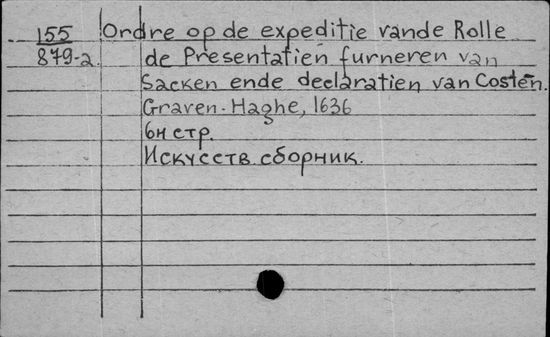 155 Ordre op de expeditie vande Rolle
879-a de Presentatien furneren van
Sacken ende declaratien van Costen.
Graven-Haghe, 1636
6н стр.
Искусств. сборник.